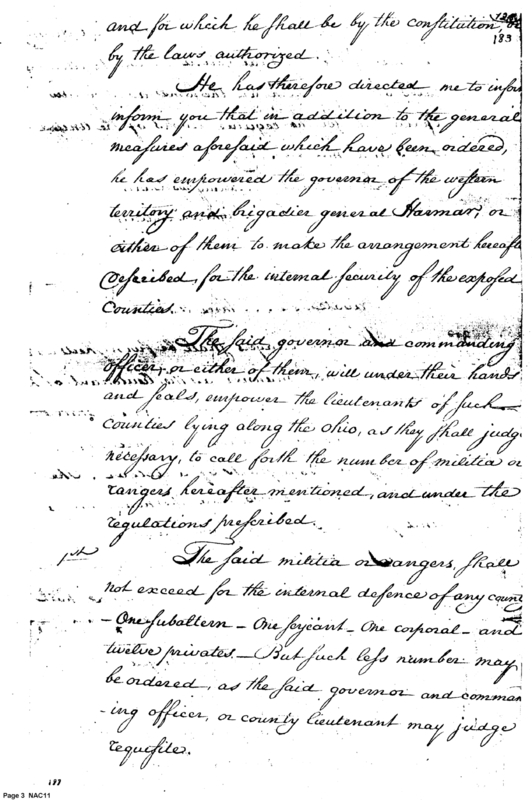 and for which he shall be by the constitution,
183
by the laws authorized.
He has therefore directed me to infor
inform you that in addition to the general
measures aforesaid which have been ordered,
he has empowered the governor of the western
territory and brigadier general Harmar, or
either of them to make the arrangement hereaft
described, for the internal security of the exposed
Counties.
The said governor and commanding
officer, or either of them, will under their hands
and seals, empower the lieutenants of such
counties lying along the ohio, as they shall judge
necessary, to call forth the number of militia or
rangers hereafter mentioned, and under the
regulations prescribed.
1st The said militia or rangers shall
not exceed for the internal defence of any county
- One subaltern - One serjeant - One corporal - and
twelve privates. - But such less number may
be ordered, as the said governor and comman
-ing officer, or county lieutenant may judge
requisite.
Page 3 NAC11